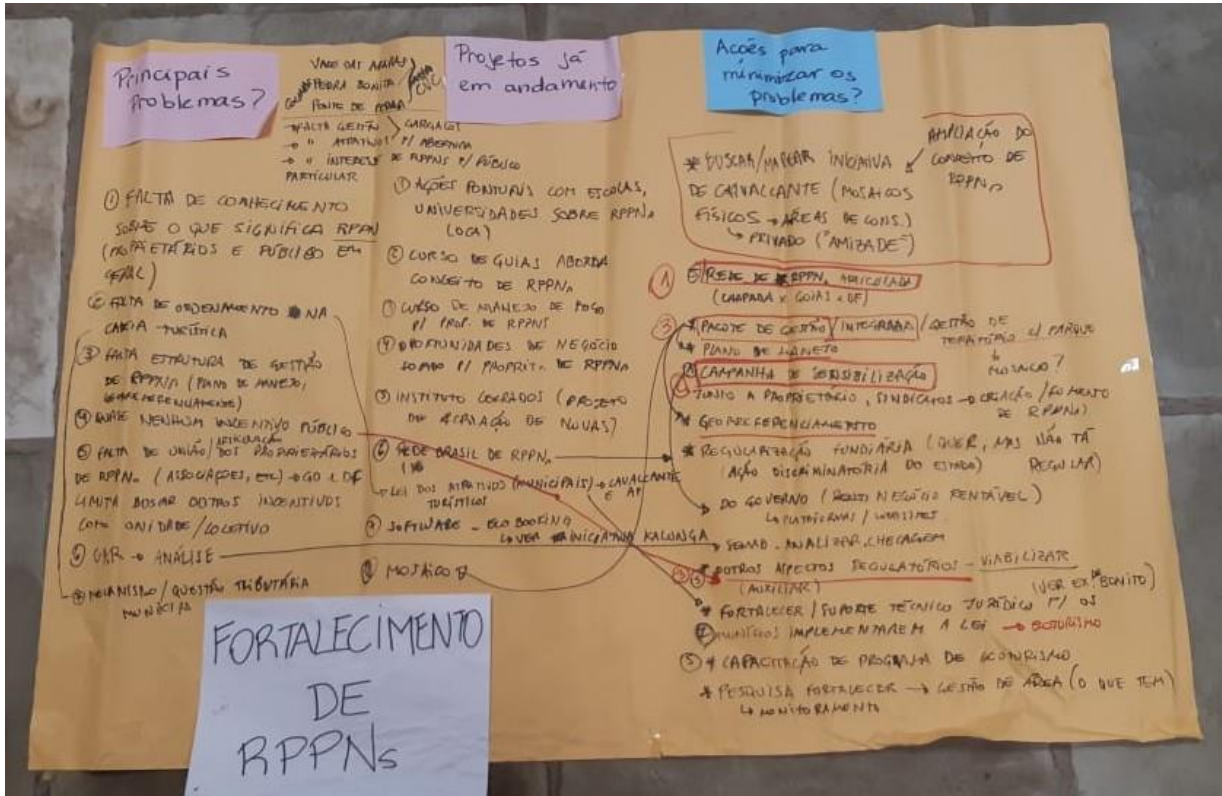 Principais
Problemas?
VALE DAS ARARAS
PEDRA BONITA
PONTE DE PEDRA
FALTA GESTÃO
→ " ATRATIVOS P/ ABERTURA
→ " INTERESSE DE RPPNS P/ PÚBLICO
PARTICULAR
① FALTA DE CONHECIMENTO
SOBRE O QUE SIGNIFICA RPPN
(PROPRIETÁRIOS E PÚBLICO EM
GERAL)
② FALTA DE ORDENAMENTO NA
CADEIA TURÍSTICA
③ FALTA ESTRUTURA DE GESTÃO
DE RPPNs (PLANO DE MANEJO,
GEORREFERENCIAMENTO)
④ QUASE NENHUM INCENTIVO PÚBLICO
⑤ FALTA DE UNIÃO/ARTICULAÇÃO DOS PROPRIETÁRIOS
DE RPPNs (ASSOCIAÇÕES, ETC) → GO E DF
LIMITA BUSCAR OUTROS INCENTIVOS
COMO UNIDADE/COLETIVO
⑥ CAR → ANÁLISE
MECANISMO/QUESTÃO TRIBUTÁRIA
Projetos já
em andamento
① AÇÕES PONTUAIS COM ESCOLAS,
UNIVERSIDADES SOBRE RPPNs
② CURSO DE GUIAS ABORDA
CONCEITO DE RPPNs
CURSO DE MANEJO DE FOGO
P/ PROP. DE RPPNS
④ OPORTUNIDADES DE NEGÓCIO
P/ PROPRIET. DE RPPNs
⑤ INSTITUTO CERRADOS (PROJETO
DE CRIAÇÃO DE NOVAS)
⑥ REDE BRASIL DE RPPNs
LEI DOS ATRATIVOS (MUNICIPAIS) → CAVALCANTE
TURÍSTICOS E AP
⑦ SOFTWARE - ECO BOOKING
↳ VER INICIATIVA KALUNGA
⑧ MOSAICO
Acões para
minimizar os
problemas?
* BUSCAR/MAPEAR INICIATIVA
DE CAVALCANTE (MOSAICOS
FÍSICOS → ÁREAS DE CONS.)
↳ PRIVADO ("AMIZADE")
AMPLIAÇÃO DO
CONCEITO DE
RPPNs
① REDE DE RPPNs ARTICULADA
(CHAPADA x GOIÁS x DF)
③ PACOTE DE GESTÃO / INTEGRADA / GESTÃO DE
TERRITÓRIO C/ PARQUE
MOSAICO?
* PLANO DE MANEJO
CAMPANHA DE SENSIBILIZAÇÃO
JUNTO A PROPRIETÁRIO, SINDICATOS → CRIAÇÃO/FOMENTO
DE RPPNs
* GEORREFERENCIAMENTO
* REGULARIZAÇÃO FUNDIÁRIA (QUER, MAS NÃO TÁ
REGULAR)
(AÇÃO DISCRIMINATÓRIA DO ESTADO)
DO GOVERNO (NEGÓCIO RENTÁVEL)
↳ PLATAFORMAS / WEBSITES
SEMAD - ANALIZAR, CHECAGEM
OUTROS ASPECTOS REGULATÓRIOS - VIABILIZAR
(AUXILIAR)
(VER EX. BONITO)
* FORTALECER/SUPORTE TÉCNICO JURÍDICO P/ OS
MUNICÍPIOS IMPLEMENTAREM A LEI → ECOTURISMO
⑤ * CAPACITAÇÃO DE PROGRAMA DE ECOTURISMO
* PESQUISA FORTALECER → GESTÃO DE ÁREA (O QUE TEM)
↳ MONITORAMENTO
FORTALECIMENTO
DE
RPPNs